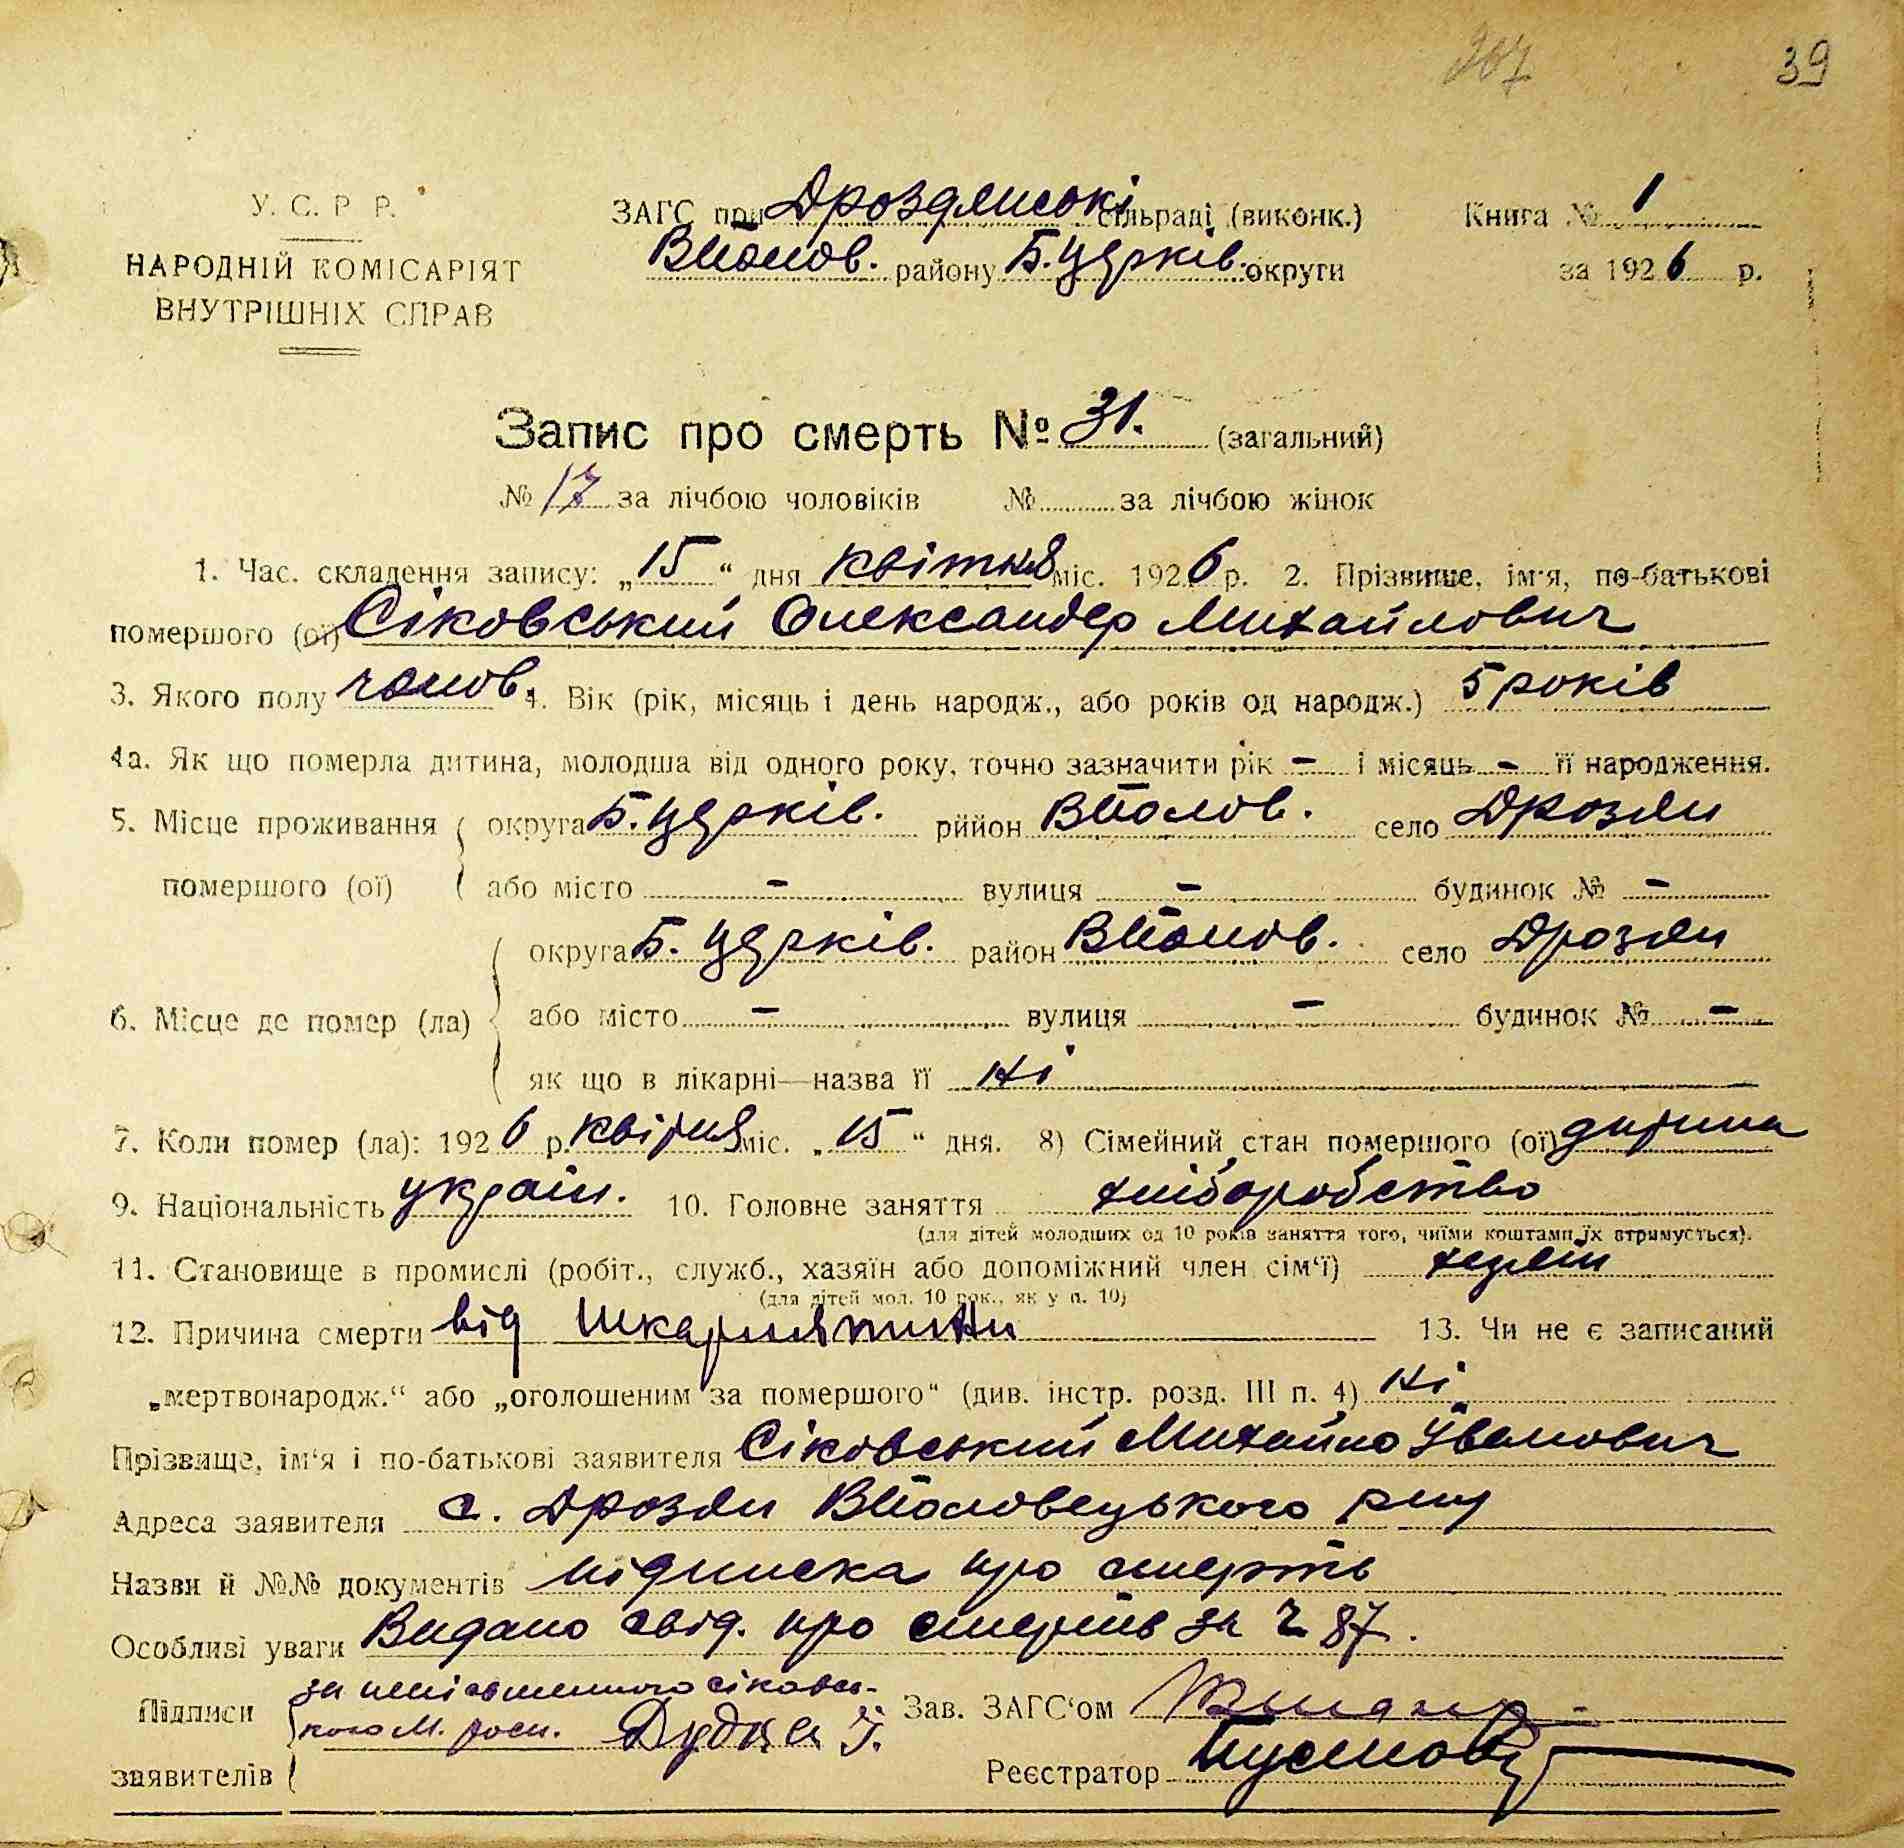 307 39
У. С. Р Р. ЗАГС при Дроздянські сільраді (виконк.) Книга № 1
НАРОДНІЙ КОМІСАРІЯТ ВПолов. району Б. Церків. округи за 1926 р.
ВНУТРІШНІХ СПРАВ
Запис про смерть № 31. (загальний)
№ 17 за лічбою чоловіків № за лічбою жінок
1. Час. складення запису: „15“ дня квітня міс. 1926 р. 2. Прізвище, ім'я, по-батькові
помершого (ої) Сіковський Олександер Михайлович
3. Якого полу чолов. 4. Вік (рік, місяць і день народж., або років од народж.) 5 років
4а. Як що померла дитина, молодша від одного року, точно зазначити рік – і місяць – її народження.
5. Місце проживання округа Б. Церків. рийон ВПолов. село Дрозди
помершого (ої) або місто – вулиця – будинок № –
округа Б. Церків. район ВПолов. село Дрозди
6. Місце де помер (ла) або місто – вулиця – будинок № –
як що в лікарні—назва її ні
7. Коли помер (ла): 1926 р. квітня міс. „15“ дня. 8) Сімейний стан помершого (ої) дитина
9. Національність україн. 10. Головне заняття хліборобство
(для дітей молодших од 10 років заняття того, чиїми коштами їх втримується).
11. Становище в промислі (робіт., служб., хазяїн або допоміжний член сім'ї)
(для дітей мол. 10 рок., як у п. 10)
12. Причина смерти від шкарлятини 13. Чи не є записаний
„мертвонародж.“ або „оголошеним за помершого“ (див. інстр. розд. III п. 4) ні
Прізвище, ім'я і по-батькові заявителя Сіковський Михайло Іванович
Адреса заявителя с. Дрозди ВПоловецького р-ну
Назви й №№ документів підписка про смерть
Особливі уваги Видано свід. про смерть за ч 87.
Підписи за неписьменного Сіковсь- Зав. ЗАГС'ом
кого М. росп. Дудка
заявителів Реєстратор